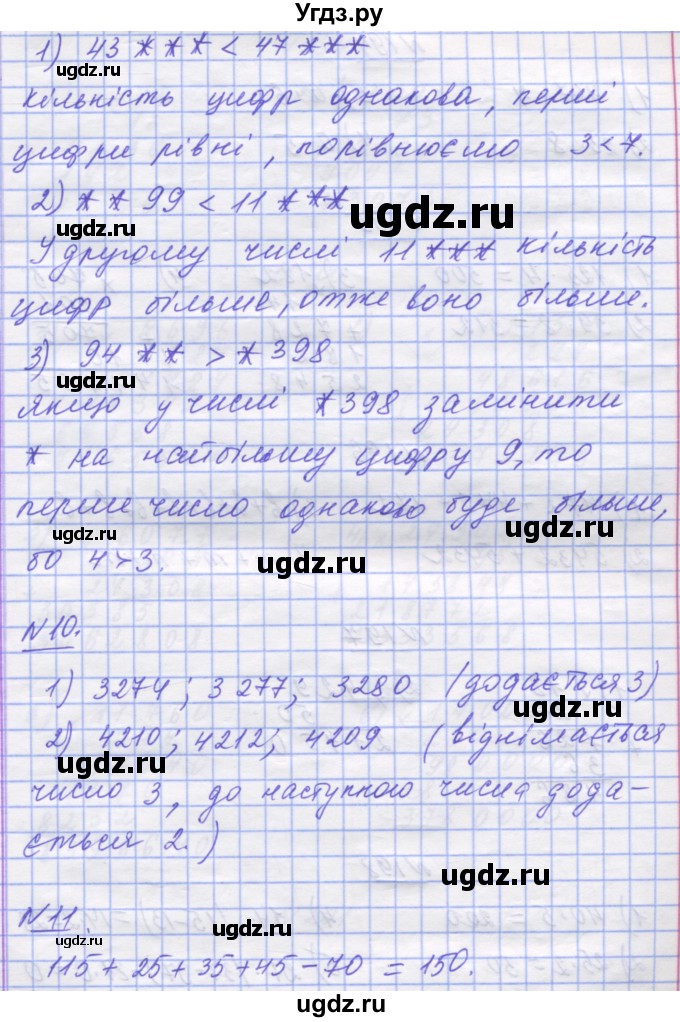 Угдз.ру
1) 43 * * * < 47 * * *
ugdz.ru
Кількість цифр однакова, перші
цифри рівні, порівнюємо 3 < 7.
ugdz.ru
2) * * 99 < 11 * * *
ugdz.ru
У другому числі 11 * * * кількість
цифр більше, отже воно більше.
ugdz.ru
3) 94 * * > * 398
ugdz.ru
якщо у числі * 398 замінити
* на найбільшу цифру 9, то
перше число однаково буде більше,
ugdz.ru
ugdz.ru
бо 4 > 3.
ugdz.ru
N 10.
1) 3274; 3 277; 3280 (додається 3)
ugdz.ru
2) 4210; 4212; 4209 (віднімається
ugdz.ru
ugdz.ru
число 3, до наступного числа дода-
ється 2.)
N 11.
ugdz.ru
ugdz.ru
115 + 25 + 35 + 45 - 70 = 150.
ugdz.ru